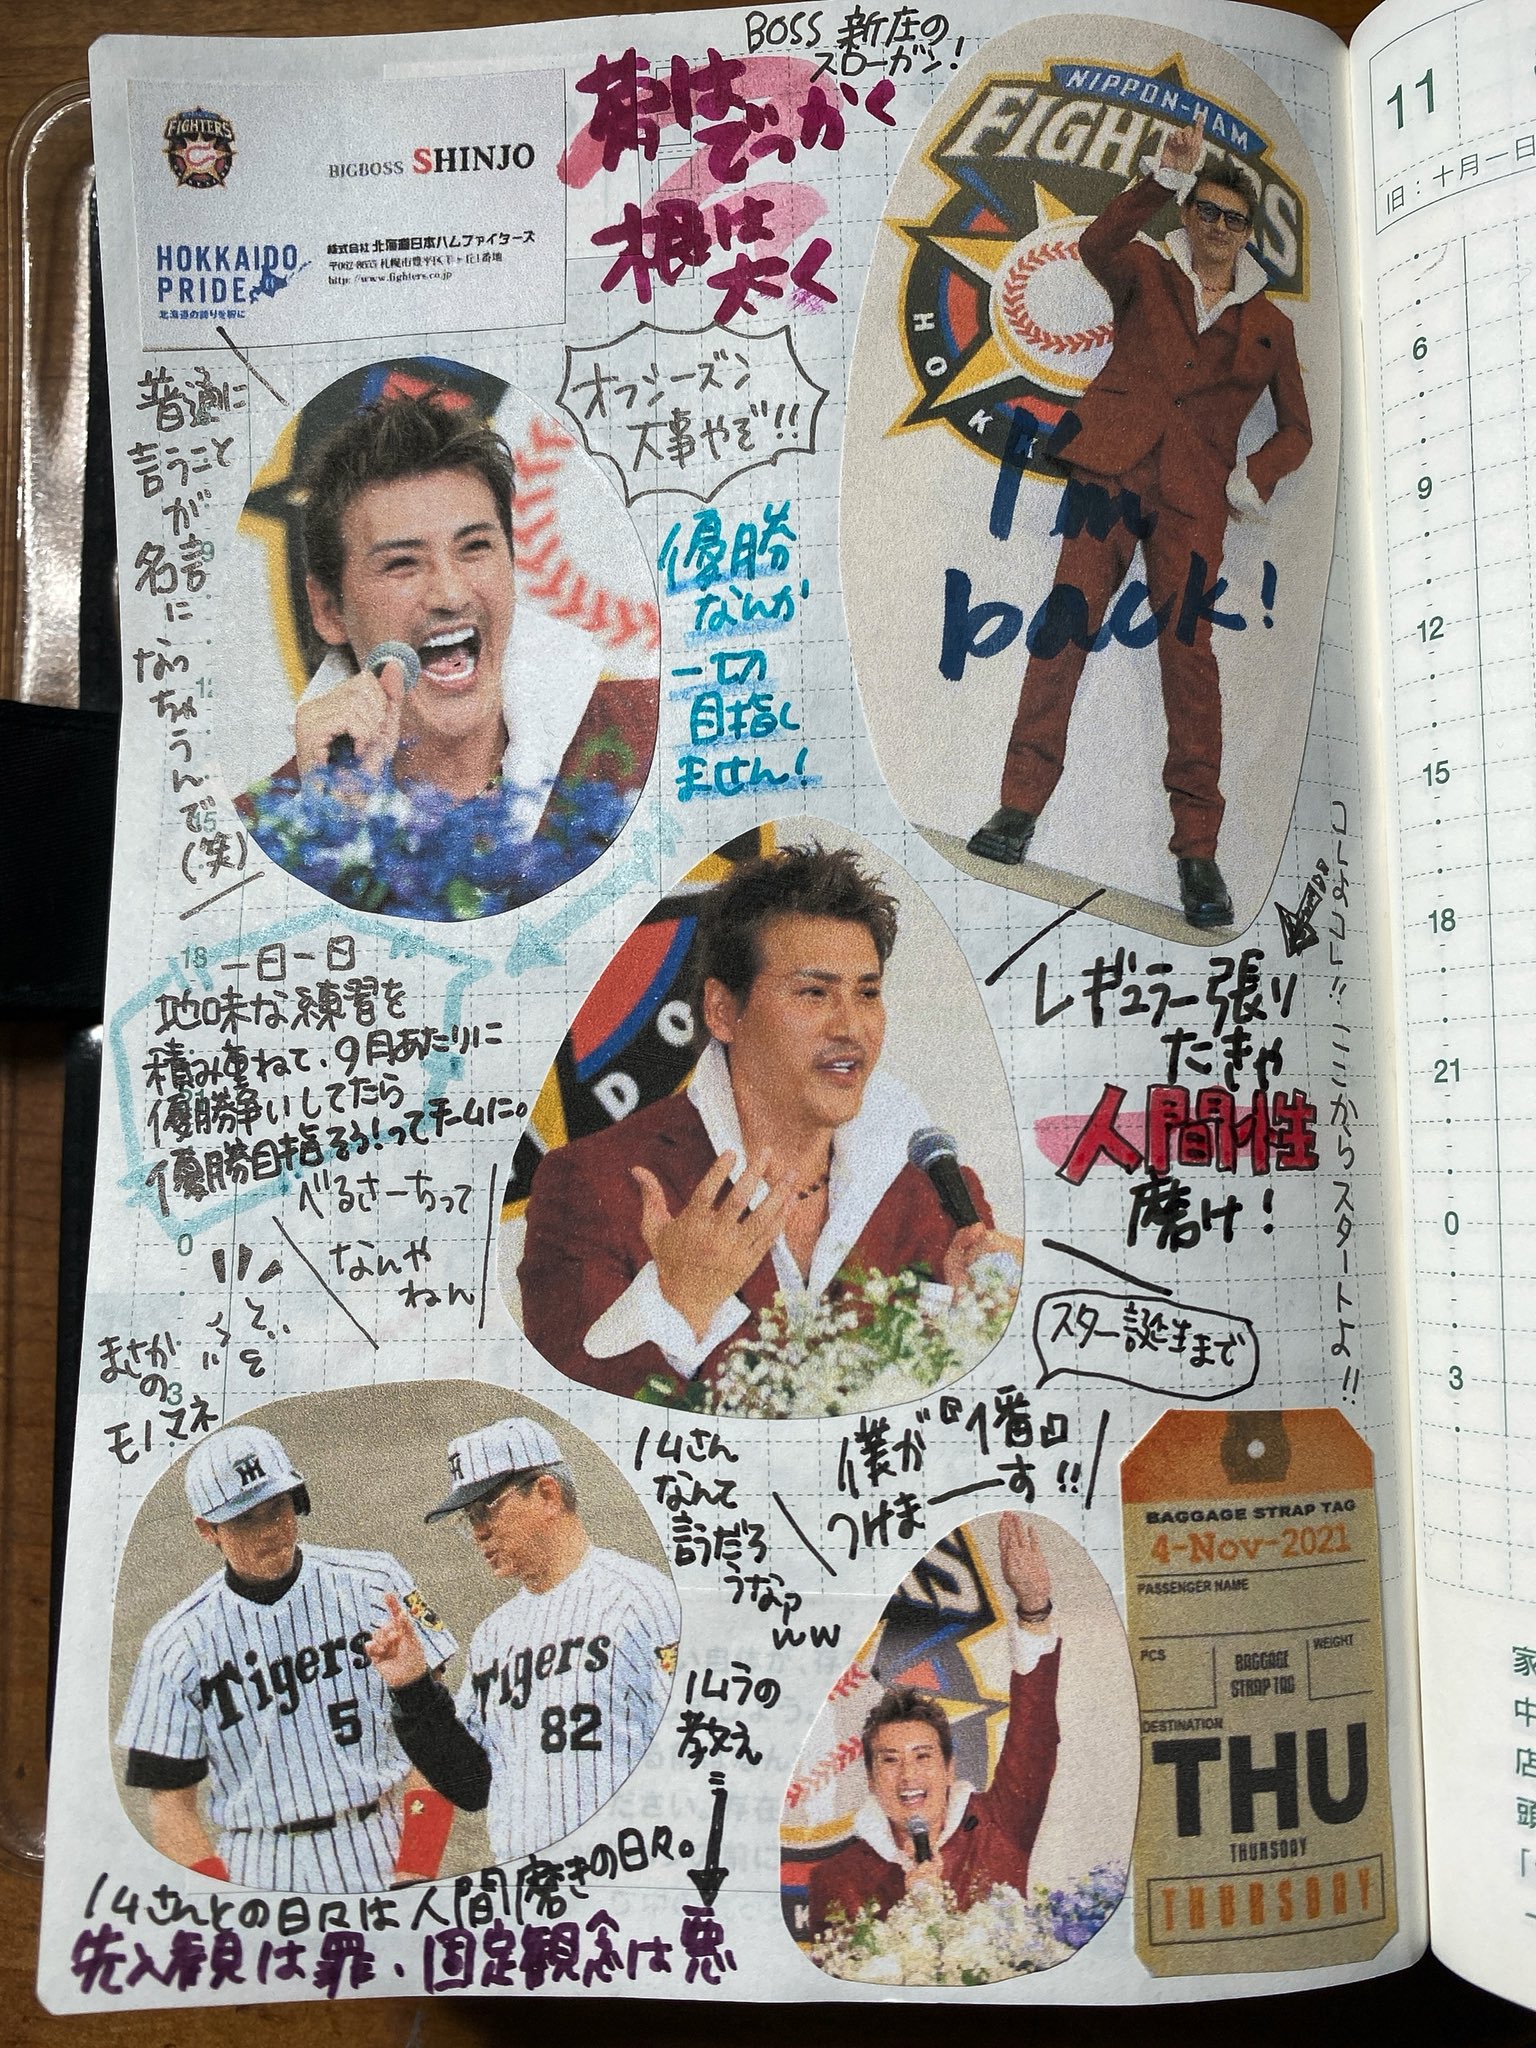 BOSS 新庄の
スローガン!
昔はでっかく
根は
太く
FIGHTERS
BIGBOSS SHINJO
HOKKAIDO
PRIDE
北海道の誇りを胸に
株式会社 北海道日本ハムファイターズ
〒062-8655 札幌市豊平区羊ヶ丘1番地
http://www.fighters.co.jp
NIPPON-HAM
FIGHTERS
HOKK
I'm
back!
オフシーズン
大事やぞ!!
普通に
言うこと
が
名言
に
なっ
ちゃ
う
ん
で
(笑)
優勝
なんか
一切
目指し
ません!
一日一日
地味な練習を
積み重ねて、9月あたりに
優勝争いしてたら
優勝目指そう!ってチームに。
べるさーちって
なんや
ねん
DO
コレよコレ!!ここからスタートよ!!
レギュラー張り
たきゃ
人間性
磨け!
スター誕生まで
僕が『1番』
つけまーーす!!
まさか
の
モノマネ
Tigers
5
Tigers
82
ノムさん
なんて
言うだろ
うな?
ww
ノムラの
教え
ノムさんとの日々は人間磨きの日々。
先入観は罪、固定観念は悪
BAGGAGE STRAP TAG
4-Nov-2021
PASSENGER NAME
PCS
BAGGAGE
STRAP TAG
WEIGHT
DESTINATION
THU
THURSDAY
THURSDAY
11
旧:十月一日
6
9
12
15
18
21
0
3
家
中
店
頭